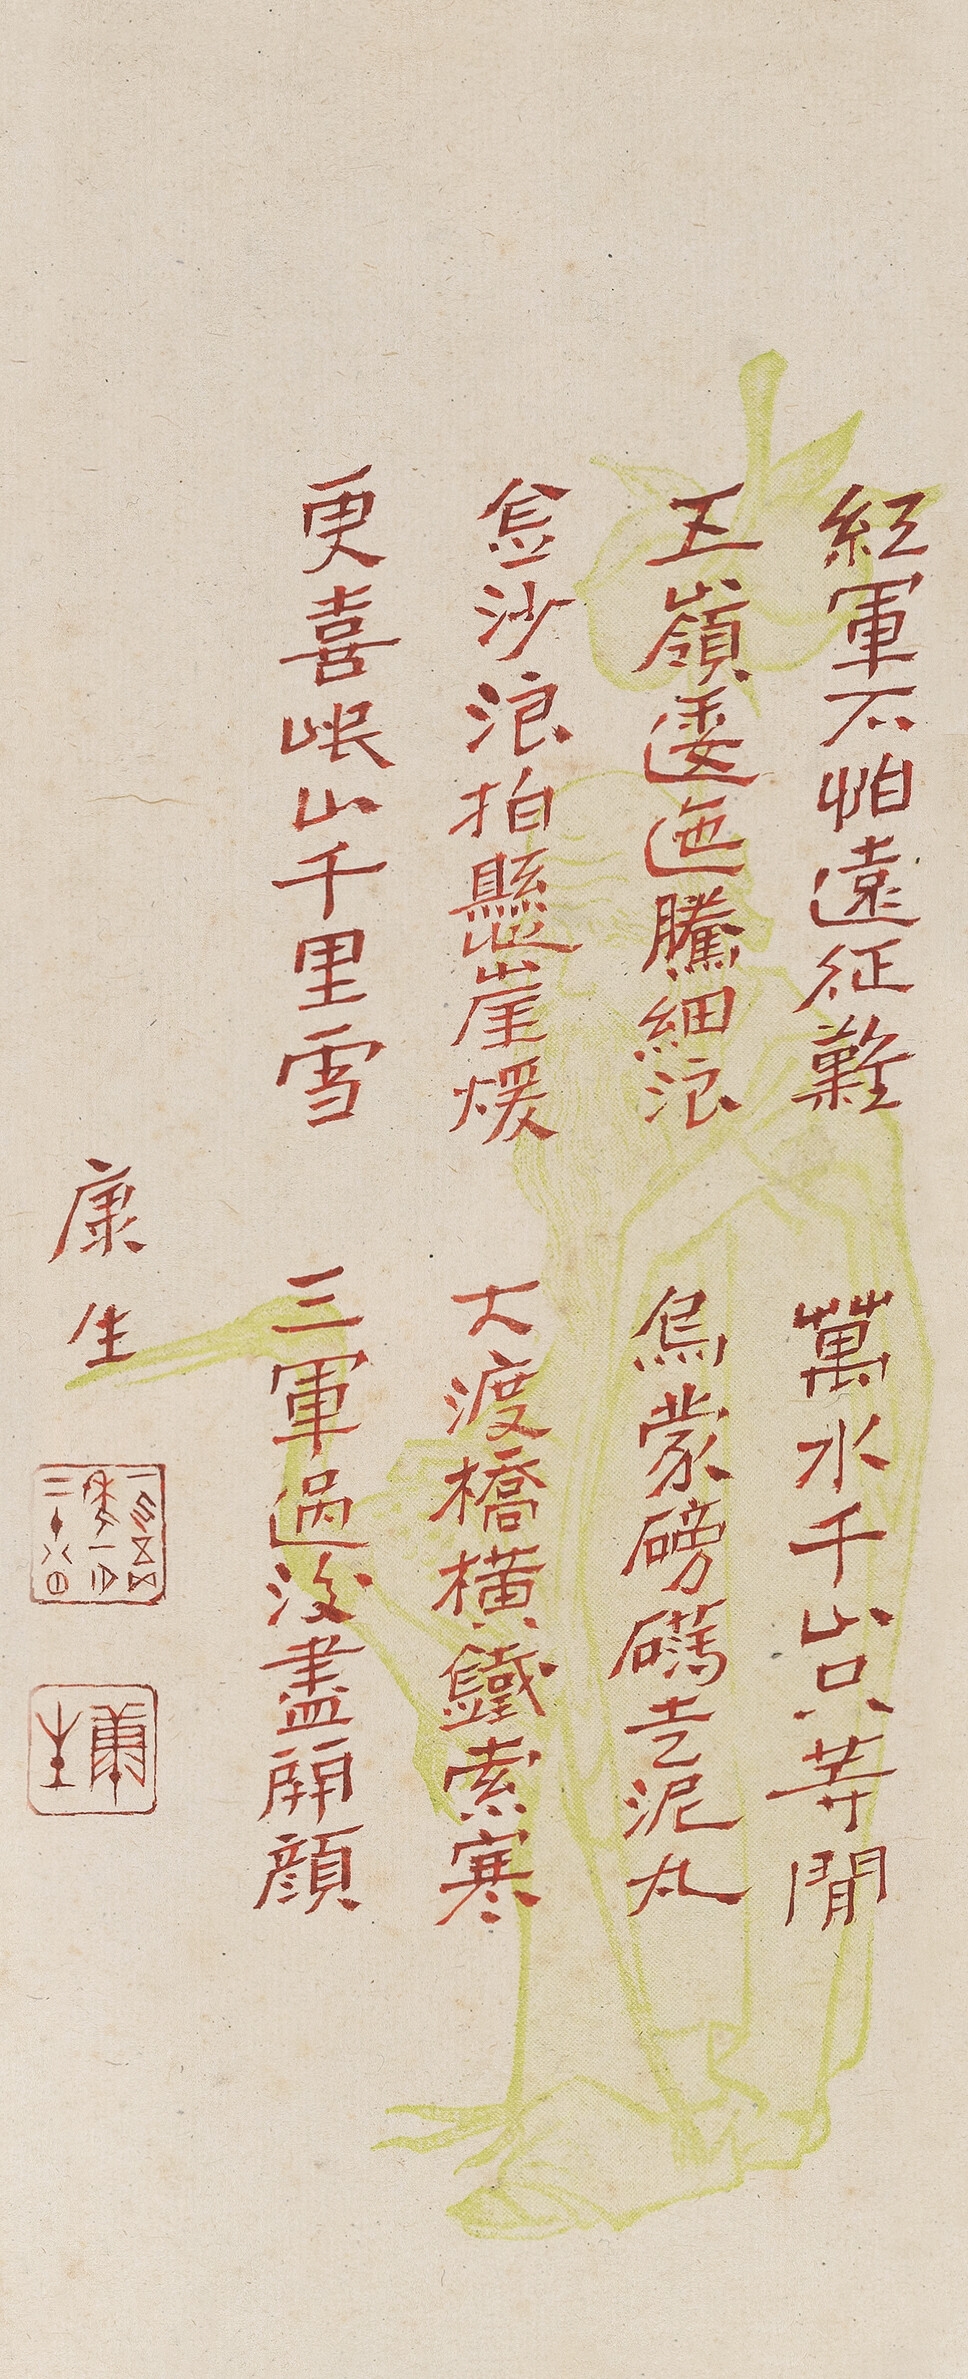 紅軍不怕遠征難　萬水千山只等閒
五嶺逶迤騰細浪　烏蒙磅礴走泥丸
金沙浪拍懸崖煖　大渡橋橫鐵索寒
更喜岷山千里雪　三軍過後盡開顏
康生
康生